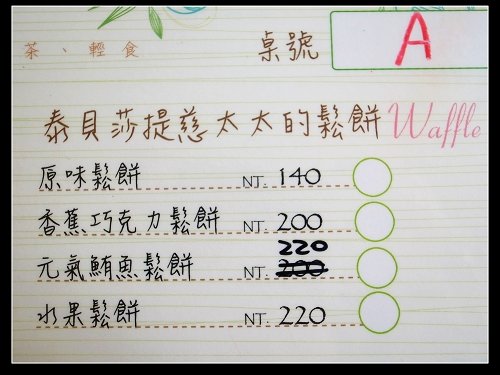 茶、輕食
桌號 A
泰貝莎提慈太太的鬆餅 Waffle
原味鬆餅 NT. 140
香蕉巧克力鬆餅 NT. 200
220
元氣鮪魚鬆餅 NT. 200
水果鬆餅 NT. 220